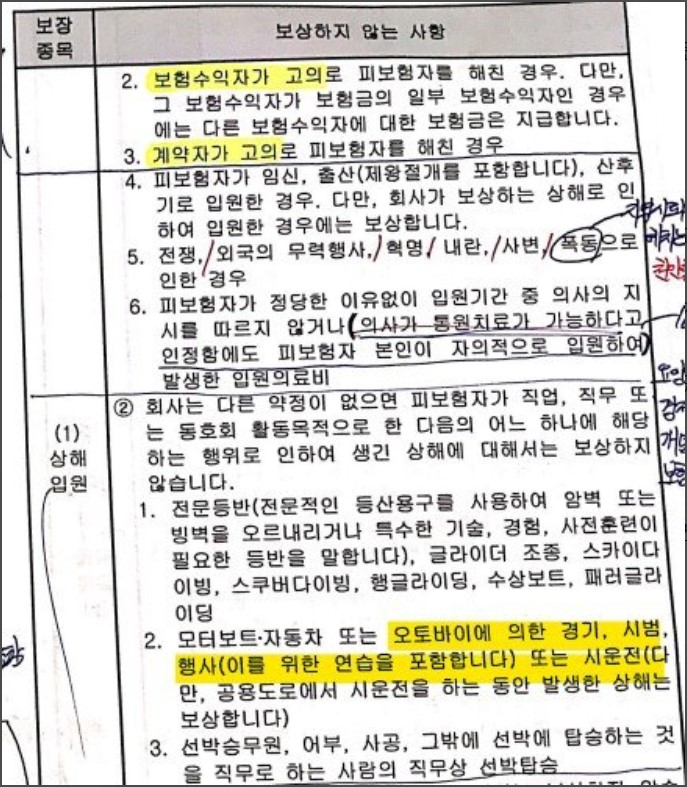 보장
종목
보상하지 않는 사항
2. 보험수익자가 고의로 피보험자를 해친 경우. 다만,
그 보험수익자가 보험금의 일부 보험수익자인 경우
에는 다른 보험수익자에 대한 보험금은 지급합니다.
3. 계약자가 고의로 피보험자를 해친 경우
4. 피보험자가 임신, 출산(제왕절개를 포함합니다), 산후
기로 입원한 경우. 다만, 회사가 보상하는 상해로 인
하여 입원한 경우에는 보상합니다.
5. 전쟁, 외국의 무력행사, 혁명, 내란, 사변, 폭동으로
인한 경우
6. 피보험자가 정당한 이유없이 입원기간 중 의사의 지
시를 따르지 않거나 의사가 통원치료가 가능하다고
인정함에도 피보험자 본인이 자의적으로 입원하여
발생한 입원의료비
(1)
상해
입원
② 회사는 다른 약정이 없으면 피보험자가 직업, 직무 또
는 동호회 활동목적으로 한 다음의 어느 하나에 해당
하는 행위로 인하여 생긴 상해에 대해서는 보상하지
않습니다.
1. 전문등반(전문적인 등산용구를 사용하여 암벽 또는
빙벽을 오르내리거나 특수한 기술, 경험, 사전훈련이
필요한 등반을 말합니다), 글라이더 조종, 스카이다
이빙, 스쿠버다이빙, 행글라이딩, 수상보트, 패러글라
이딩
2. 모터보트·자동차 또는 오토바이에 의한 경기, 시범,
행사(이를 위한 연습을 포함합니다) 또는 시운전(다
만, 공용도로에서 시운전을 하는 동안 발생한 상해는
보상합니다)
3. 선박승무원, 어부, 사공, 그밖에 선박에 탑승하는 것
을 직무로 하는 사람의 직무상 선박탑승